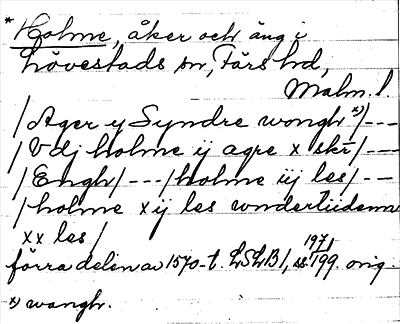 * Holme, åker och äng i
Lövestads sn, Färs hd,
Malm. l
/ Ager y Syndre wongh x)/---
/ Vdj holme ij agre x skr/---
/ Engh/ --- /holme iij les/ ---
/ holme xij les wndertiidom
xx les /
förra delen av 1570-t. LSLB1, s. 199. orig.
197,
x) wangh.